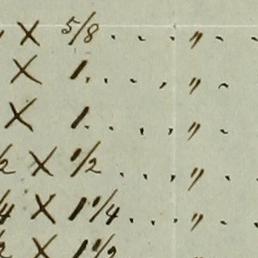 x 5/8 . . . "
x 1. . . . "
x 1 . . . . "
/2 x 1/2 . . . "
/4 x 1 1/4 . . . "
/2 x 1 1/2 . . . "